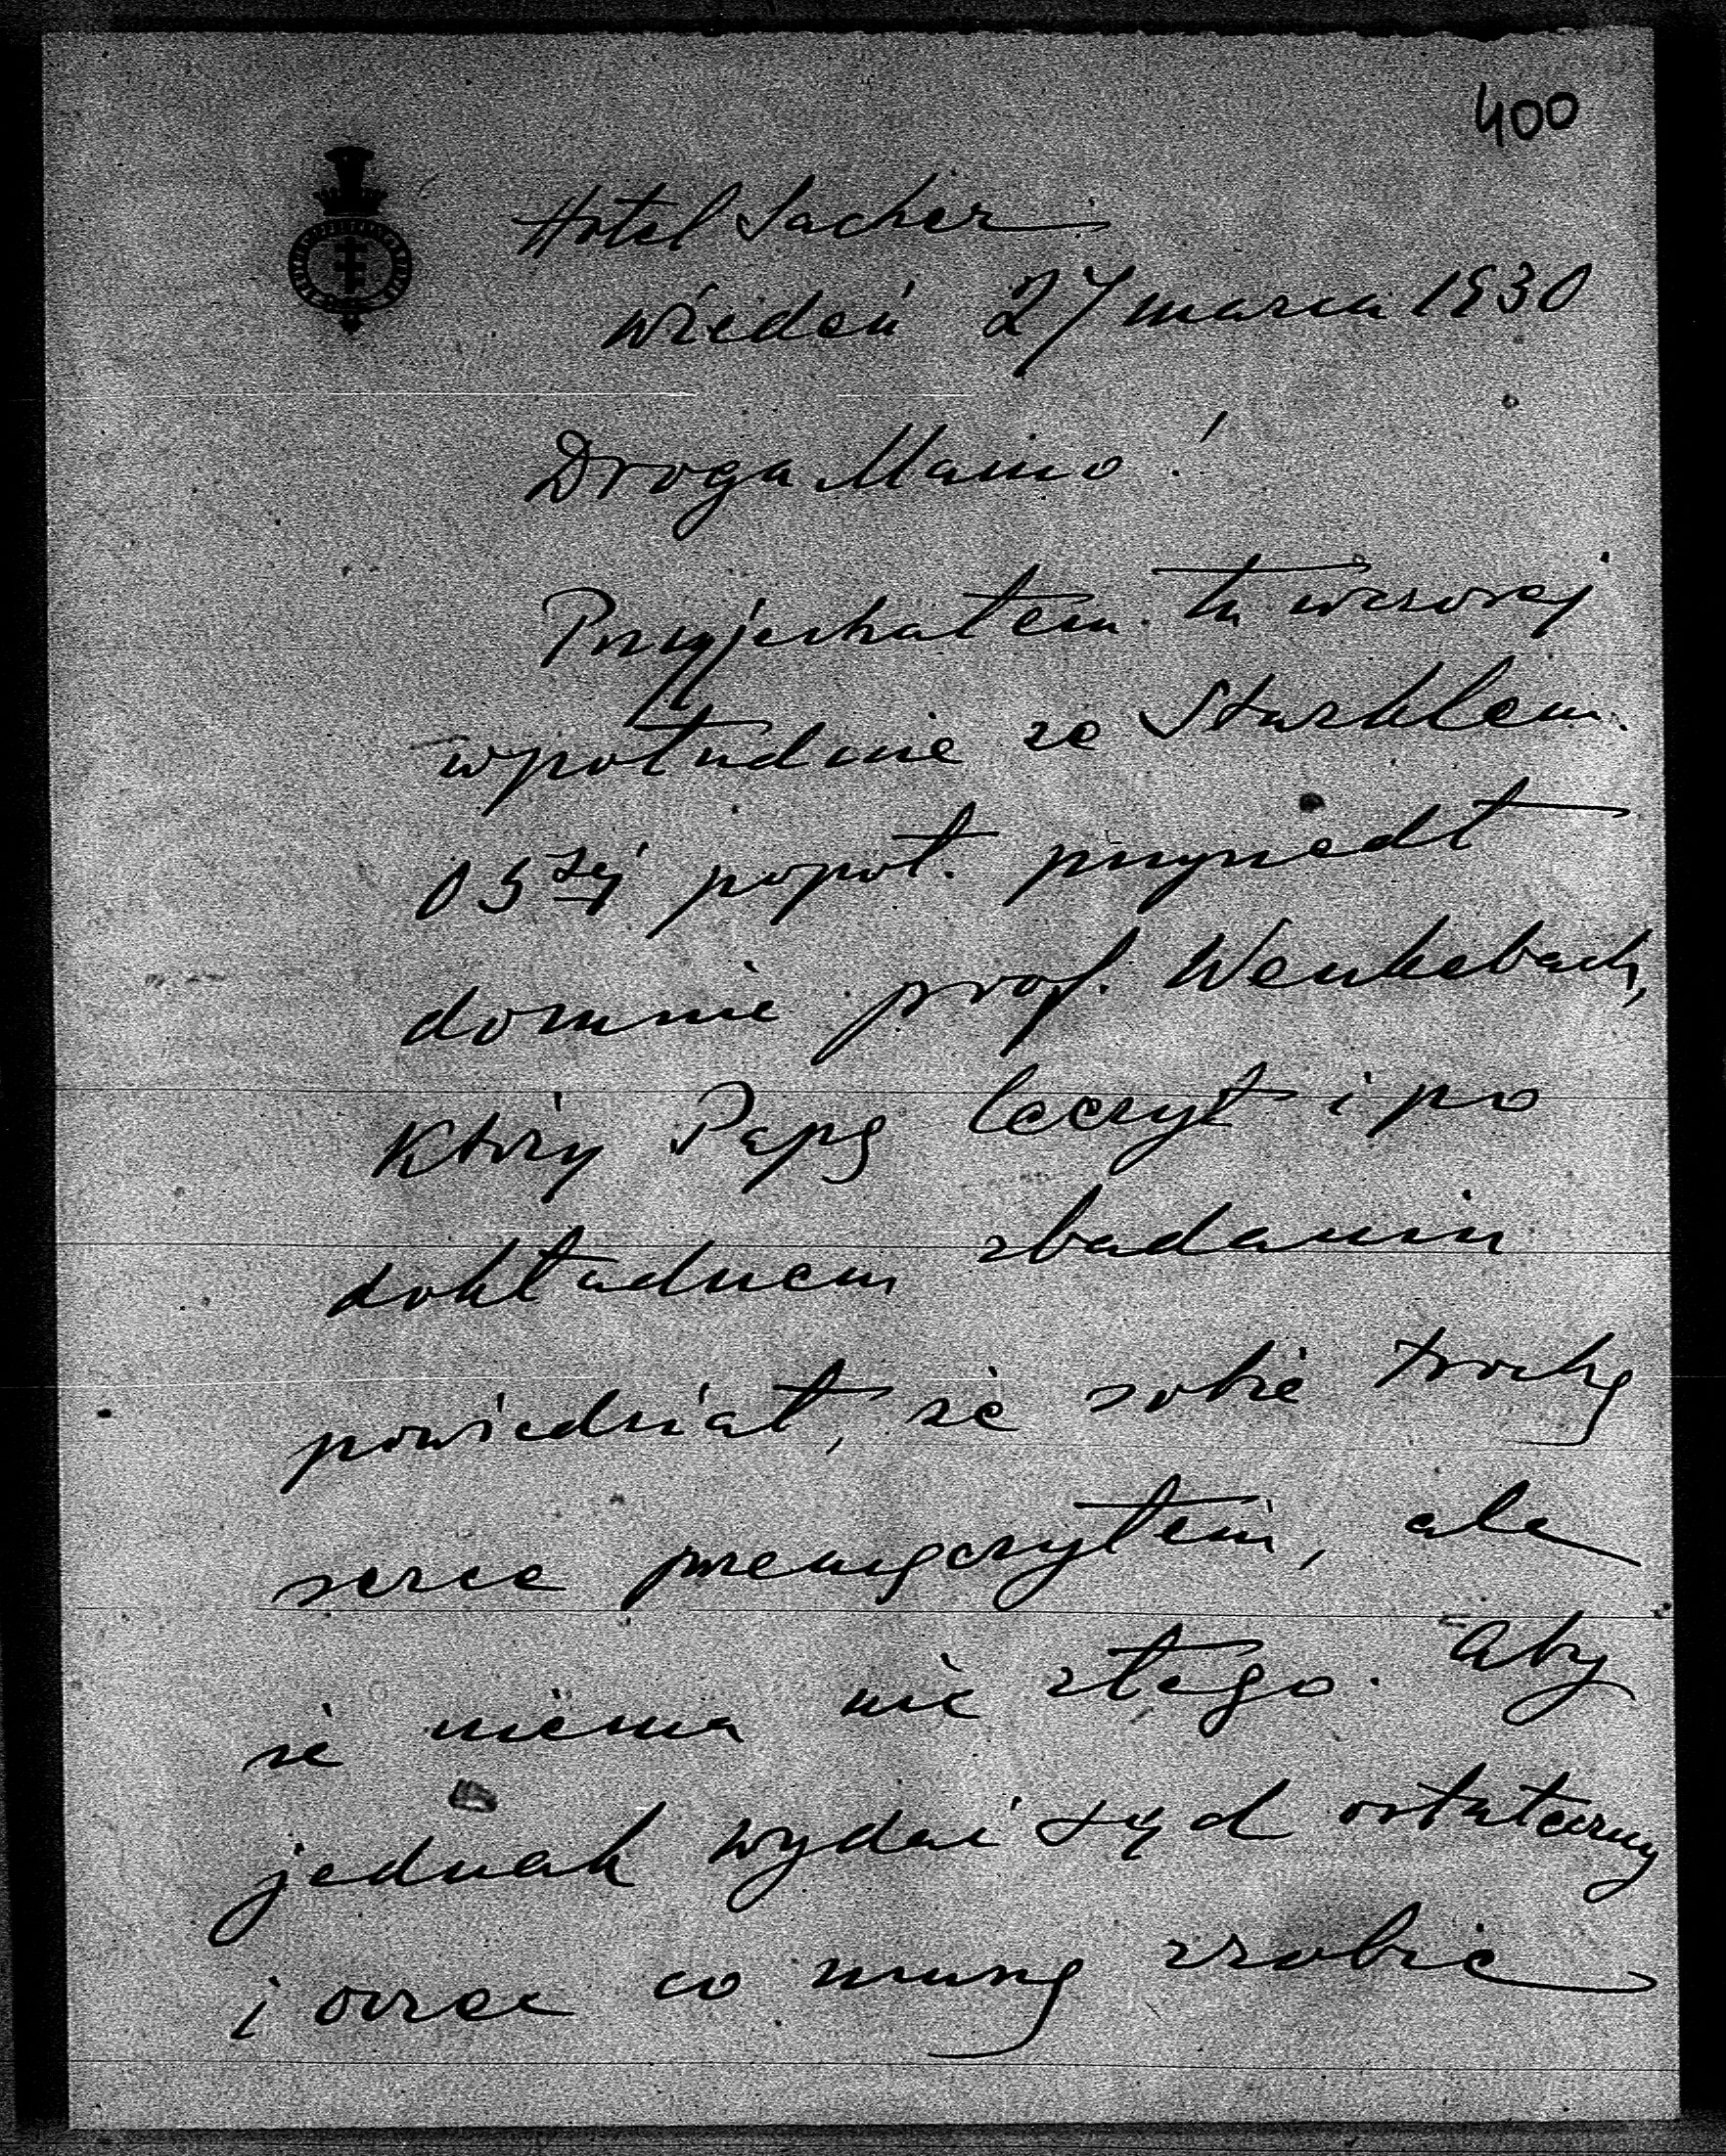 400
Hotel Sacher
Wiedeń 27 marca 1930
Droga Mamo!
Przyjechałem tu wczoraj
wpołudnie ze Starklem.
O 5tej popoł. przyszedł
do mnie prof. Wenkebach,
który Papę leczył i po
dokładnem zbadaniu
powiedział, że sobie trochę
serce przemęczyłem, ale
że niema nic złego. Aby
jednak wydać sąd ostateczny
i orzec co muszę zrobić